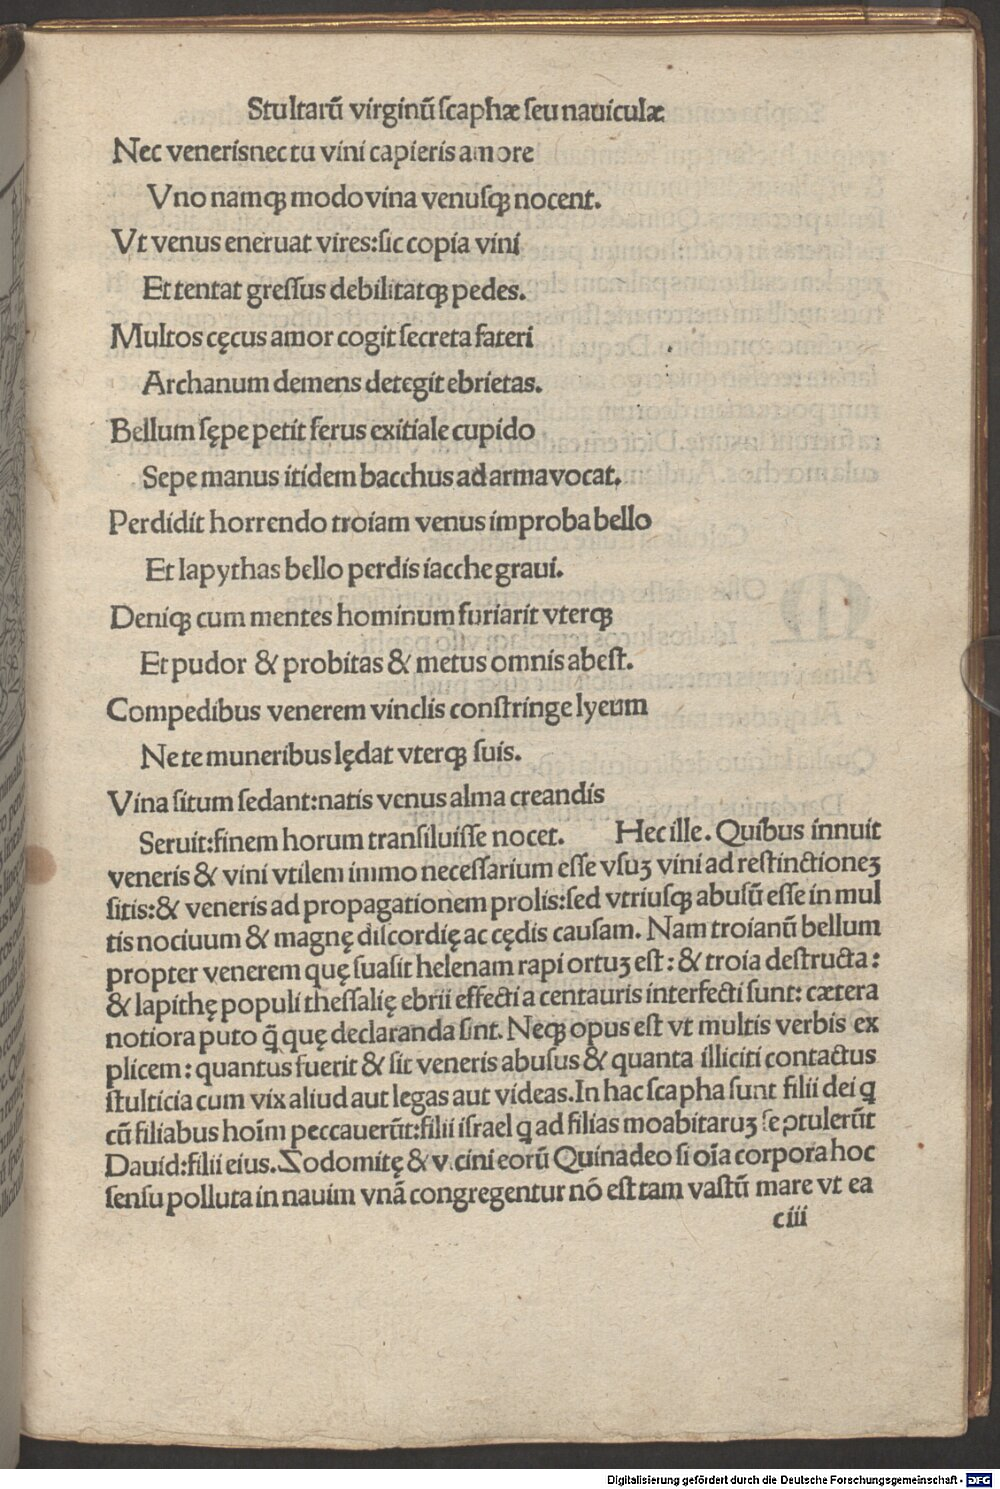 Stultarū virginū scaphæ seu nauiculæ
Nec veneris nec tu vini capieris amore
Vno namqꝫ modo vina venusqꝫ nocent.
Vt venus eneruat vires:sic copia vini
Et tentat gressus debilitatqꝫ pedes.
Multos cęcus amor cogit secreta fateri
Archanum demens detegit ebrietas.
Bellum sępe petit ferus exitiale cupido
Sepe manus itidem bacchus ad arma vocat.
Perdidit horrendo troiam venus improba bello
Et lapythas bello perdis iacche graui.
Deniqꝫ cum mentes hominum furiarit vterqꝫ
Et pudor & probitas & metus omnis abest.
Compedibus venerem vinclis constringe lyeum
Ne te muneribus lędat vterqꝫ suis.
Vina situm sedant:natis venus alma creandis
Seruit:finem horum transiluisse nocet. Hec ille. Quibus innuit
veneris & vini vtilem immo necessarium esse vsuꝫ vini ad restinctioneꝫ
sitis:& veneris ad propagationem prolis:sed vtriusqꝫ abusū esse in mul
tis nociuum & magnę discordię ac cędis causam. Nam troianū bellum
propter venerem quę suasit helenam rapi ortuꝫ est: & troia destructa:
& lapithę populi thessalię ebrii effecti a centauris interfecti sunt: cætera
notiora puto q̄ quę declaranda sint. Neqꝫ opus est vt multis verbis ex
plicem: quantus fuerit & sit veneris abusus & quanta illiciti contactus
stulticia cum vix aliud aut legas aut videas. In hac scapha sunt filii dei q
cū filiabus hoīm peccauerūt:filii israel q ad filias moabitaruꝫ se ptulerūt
Dauid:filii eius. Zodomitę & vicini eorū Quinadeo si oīa corpora hoc
sensu polluta in nauim vnā congregentur nō est tam vastū mare vt ea
ciii
Digitalisierung gefördert durch die Deutsche Forschungsgemeinschaft - DFG